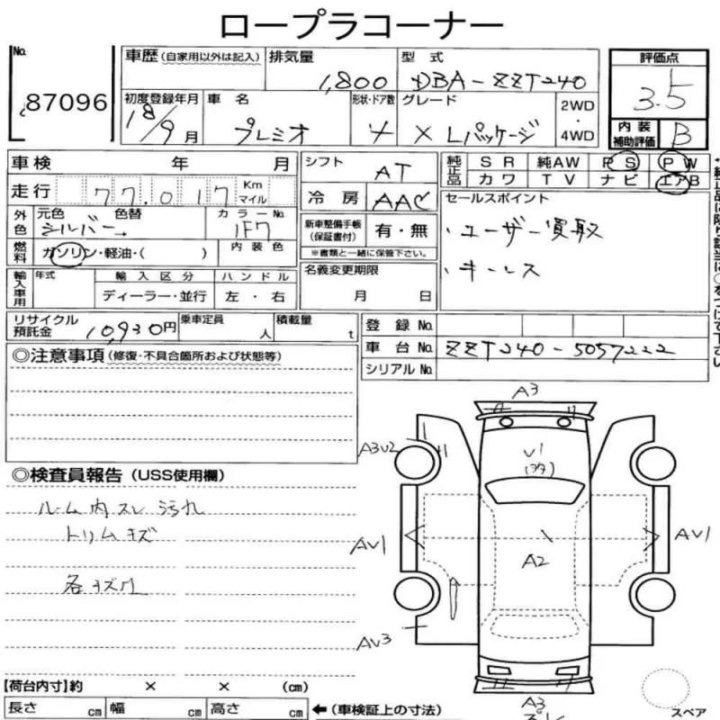 ロープラコーナー
No.
87096
車歴 (自家用以外は記入)
排気量
1,800
型式
DBA-ZZT240
評価点
3.5
内装補助評価
B
初度登録年月
18/9月
車名
プレミオ
形状・ドア数
4
グレード
X Lパッケージ
2WD
・
4WD
車検 年 月
シフト
AT
純正品
SR 純AW PS PW
カワ TV ナビ エアB
走行
77.017
Km
マイル
冷房
AAC
セールスポイント
・ユーザー買取
・キーレス
外色
元色 色替
シルバー
カラーNo.
1F7
新車整備手帳
(保証書付)
有・無
※書類と一緒に保管下さい。
燃料
ガソリン・軽油・( )
内装色
名義変更期限
月 日
輸入車用
年式
輸入区分
ハンドル
ディーラー・並行
左・右
リサイクル預託金
10,930円
乗車定員
人
積載量
t
登録No.
車台No.
ZZT240-5057222
シリアルNo.
◎注意事項 (修復・不具合箇所および状態等)
◎検査員報告 (USS使用欄)
ルーム内スレ汚れ
トリムキズ
各キズ凹
A3
A3U2
U1
AU1
A2
AU1
AU3
A3
スペア
【荷台内寸】約 × × (cm)
長さ cm 幅 cm 高さ cm ←(車検証上の寸法)